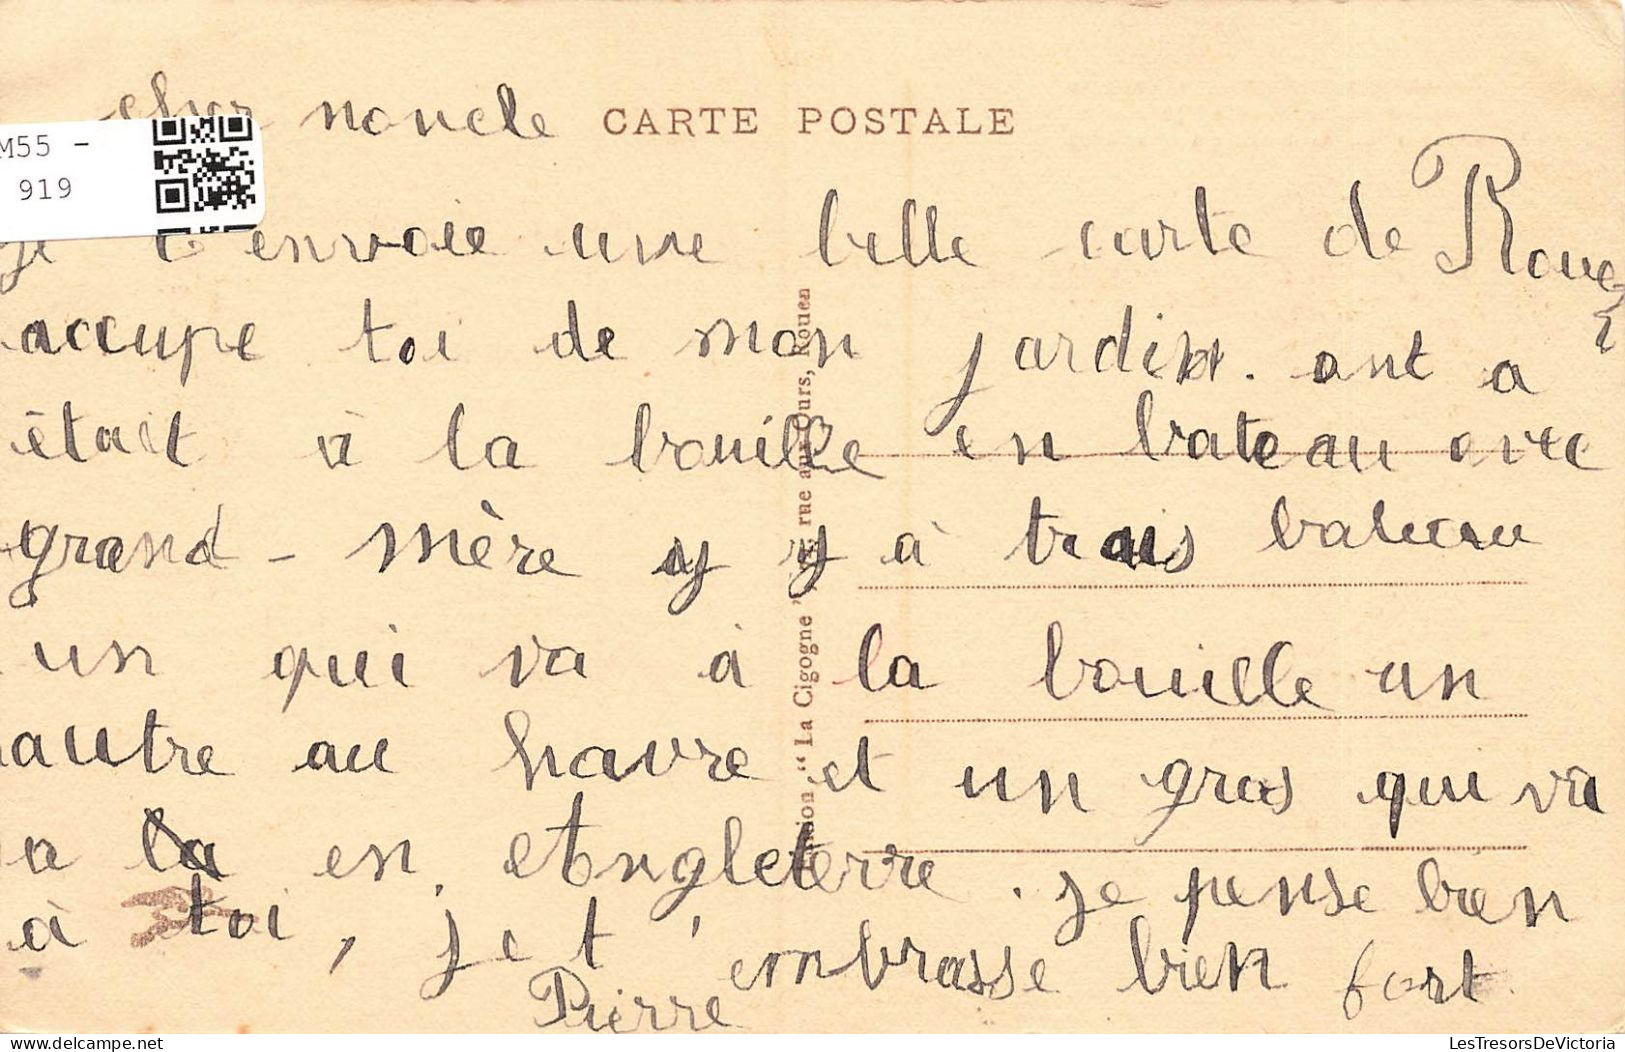 cher noncle
CARTE POSTALE
M55 -
919
je t envoie une belle carte de Rouen
accupe toi de mon jardin. ont a
était à la bouille en bateau avec
grand - mère y y à trois bateau
un qui va à la bouille un
autre au havre et un gros qui va
a la en Angleterre. je pense bien
à toi, je t'embrasse bien fort.
Pierre
"La Cigogne" rue aux Ours, Rouen
LesTresorsDeVictoria